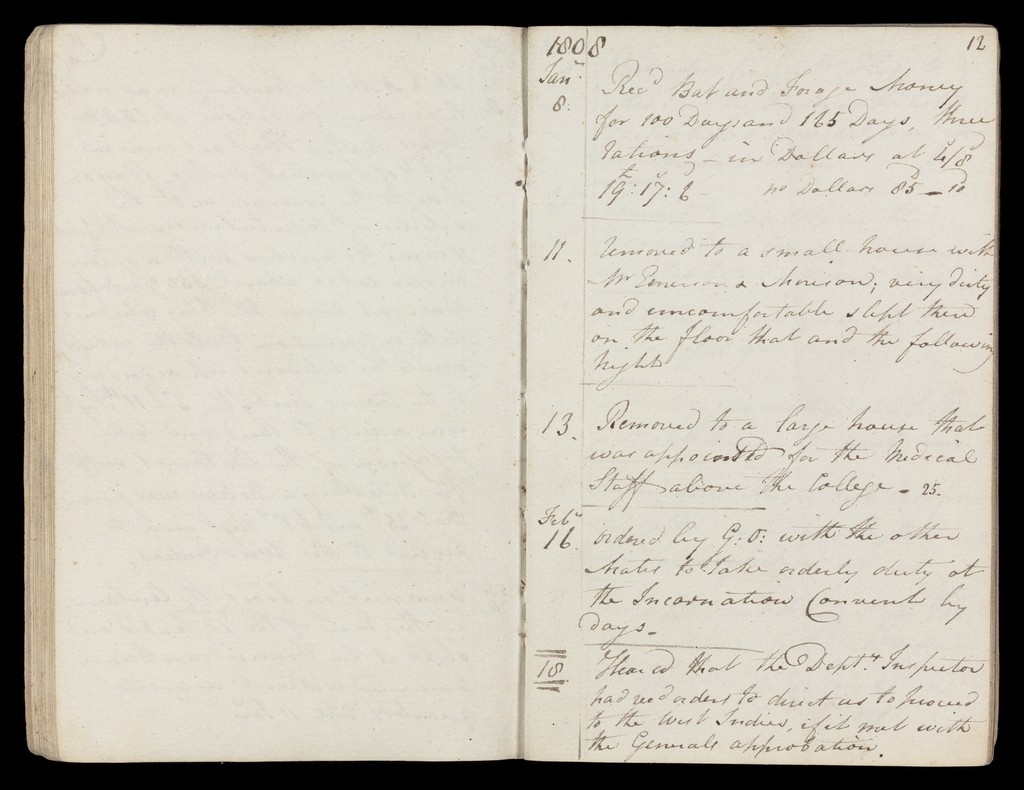 1808
12
Jany
8.
Recd Bat and Forage Money
for 100 Days and 165 Days, three
rations - in Dollars at 4s/8d
19£:17s:6d no Dollars 85 - 10d
11. removed to a small house with
Mr Emerson & Morison; very dirty
and uncomfortable slept there
on the floor that and the following
night
13. Removed to a large house that
was appointed for the Medical
Staff above the College - 25.
Feby
16. ordered by G: O: with the other
Mates to take orderly duty at
the Incarnation Convent by
days.
18. Heard that the Depty. Inspector
had recd orders to direct us to proceed
to the West Indies, if it met with
the Generals approbation.